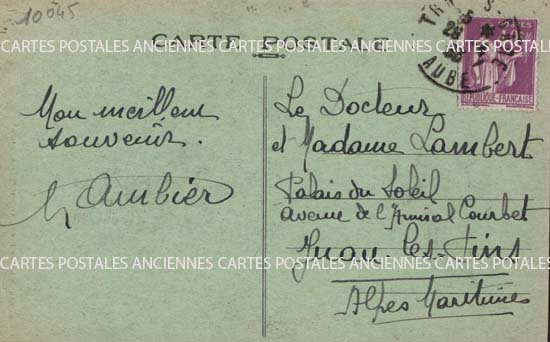 10045
CARTE POSTALE
TRA S.
28
AUBE
POSTES
REPUBLIQUE FRANÇAISE
CARTES POSTALES ANCIENNES CARTES POSTALES ANCIENNES CARTES POSTALES
Mon meilleur
souvenir.
Ambier
Le Docteur
et Madame Lambert
Palais du Soleil
avenue de l'Amiral Courbet
Juan-les-Pins
Alpes Maritimes
CARTES POSTALES ANCIENNES CARTES POSTALES ANCIENNES CARTES POSTALES